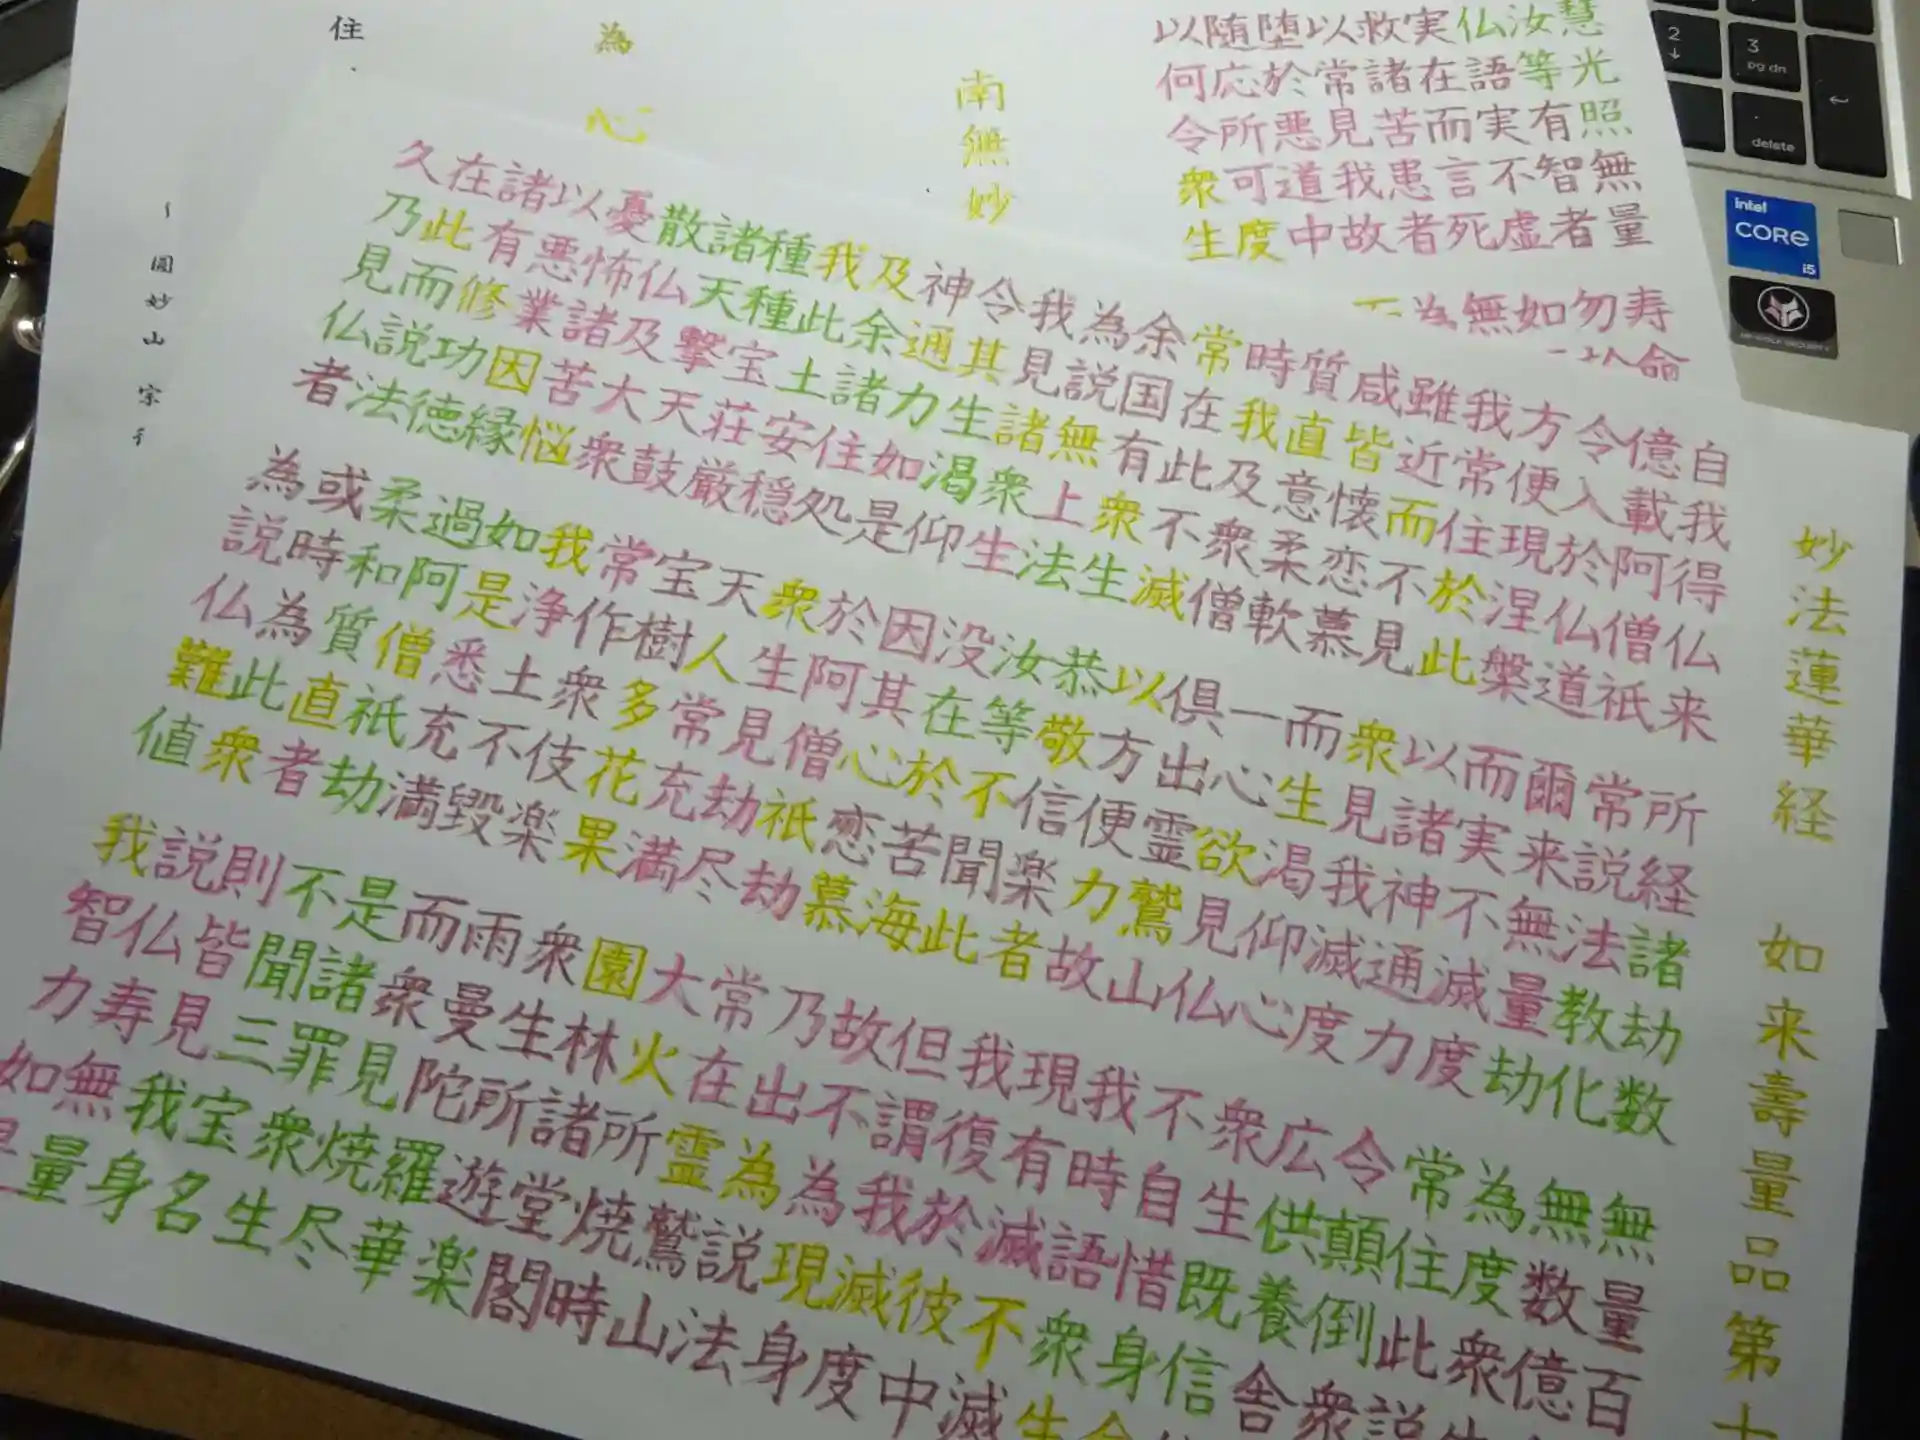 妙法蓮華経 如来壽量品第十
自我得仏来 所経諸劫数 無量百
億載阿僧祇 常説法教化 無数億
令入於仏道 爾来無量劫 為度衆生
方便現涅槃 而実不滅度 常住此説
我常住於此 以諸神通力 令顛倒衆
雖近而不見 衆見我滅度 広供養舎
咸皆懐恋慕 而生渇仰心 衆生既信
質直意柔軟 一心欲見仏 不自惜身
時我及衆僧 倶出霊鷲山 我時語衆生
常在此不滅 以方便力故 現有滅不滅
余国有衆生 恭敬信楽者 我復於彼中
為説無上法 汝等不聞此 但謂我滅度
我見諸衆生 没在於苦海 故不為現身
令其生渇仰 因其心恋慕 乃出為説法
神通力如是 於阿僧祇劫 常在霊鷲山
及余諸住処 衆生見劫尽 大火所焼時
我此土安穏 天人常充満 園林諸堂閣
種種宝荘厳 宝樹多花果 衆生所遊楽
諸天撃天鼓 常作衆伎楽 雨曼陀羅華
散仏及大衆 我浄土不毀 而衆見焼尽
憂怖諸苦悩 如是悉充満 是諸罪衆生
以悪業因縁 過阿僧祇劫 不聞三宝名
諸有修功徳 柔和質直者 則皆見我身
在此而説法 或時為此衆 説仏寿無量
久乃見仏者 為説仏難値 我智力如是
慧光照無量 寿命
汝等有智者 勿以
仏語実不虚 如
実在而言死 無
救諸苦患者 為
以常見我故
堕於悪道中
随応所可度
以何令衆生
南無妙
為 心
住
圓妙山 宗
2
3
pg dn
.
delete
intel
CORE
i5